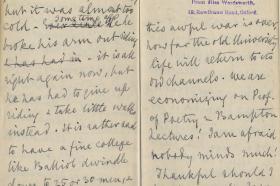 but it was almost too
cold – some time ago he
broke his arm out riding
– it is all
right again now, but
he has had to give up
riding & take little walks
instead. It is rather sad
to have a fine college
like Balliol dwindle
down to 25 or 30 men, &
From Miss Wordsworth,
Rawlinson Road, Oxford.
this awful war is over
how far the old University
life will return to its
old channels. We are
economizing in Prof.
of Poetry & Bampton
Lectures! I am afraid
nobody minds much!
Thankful should I